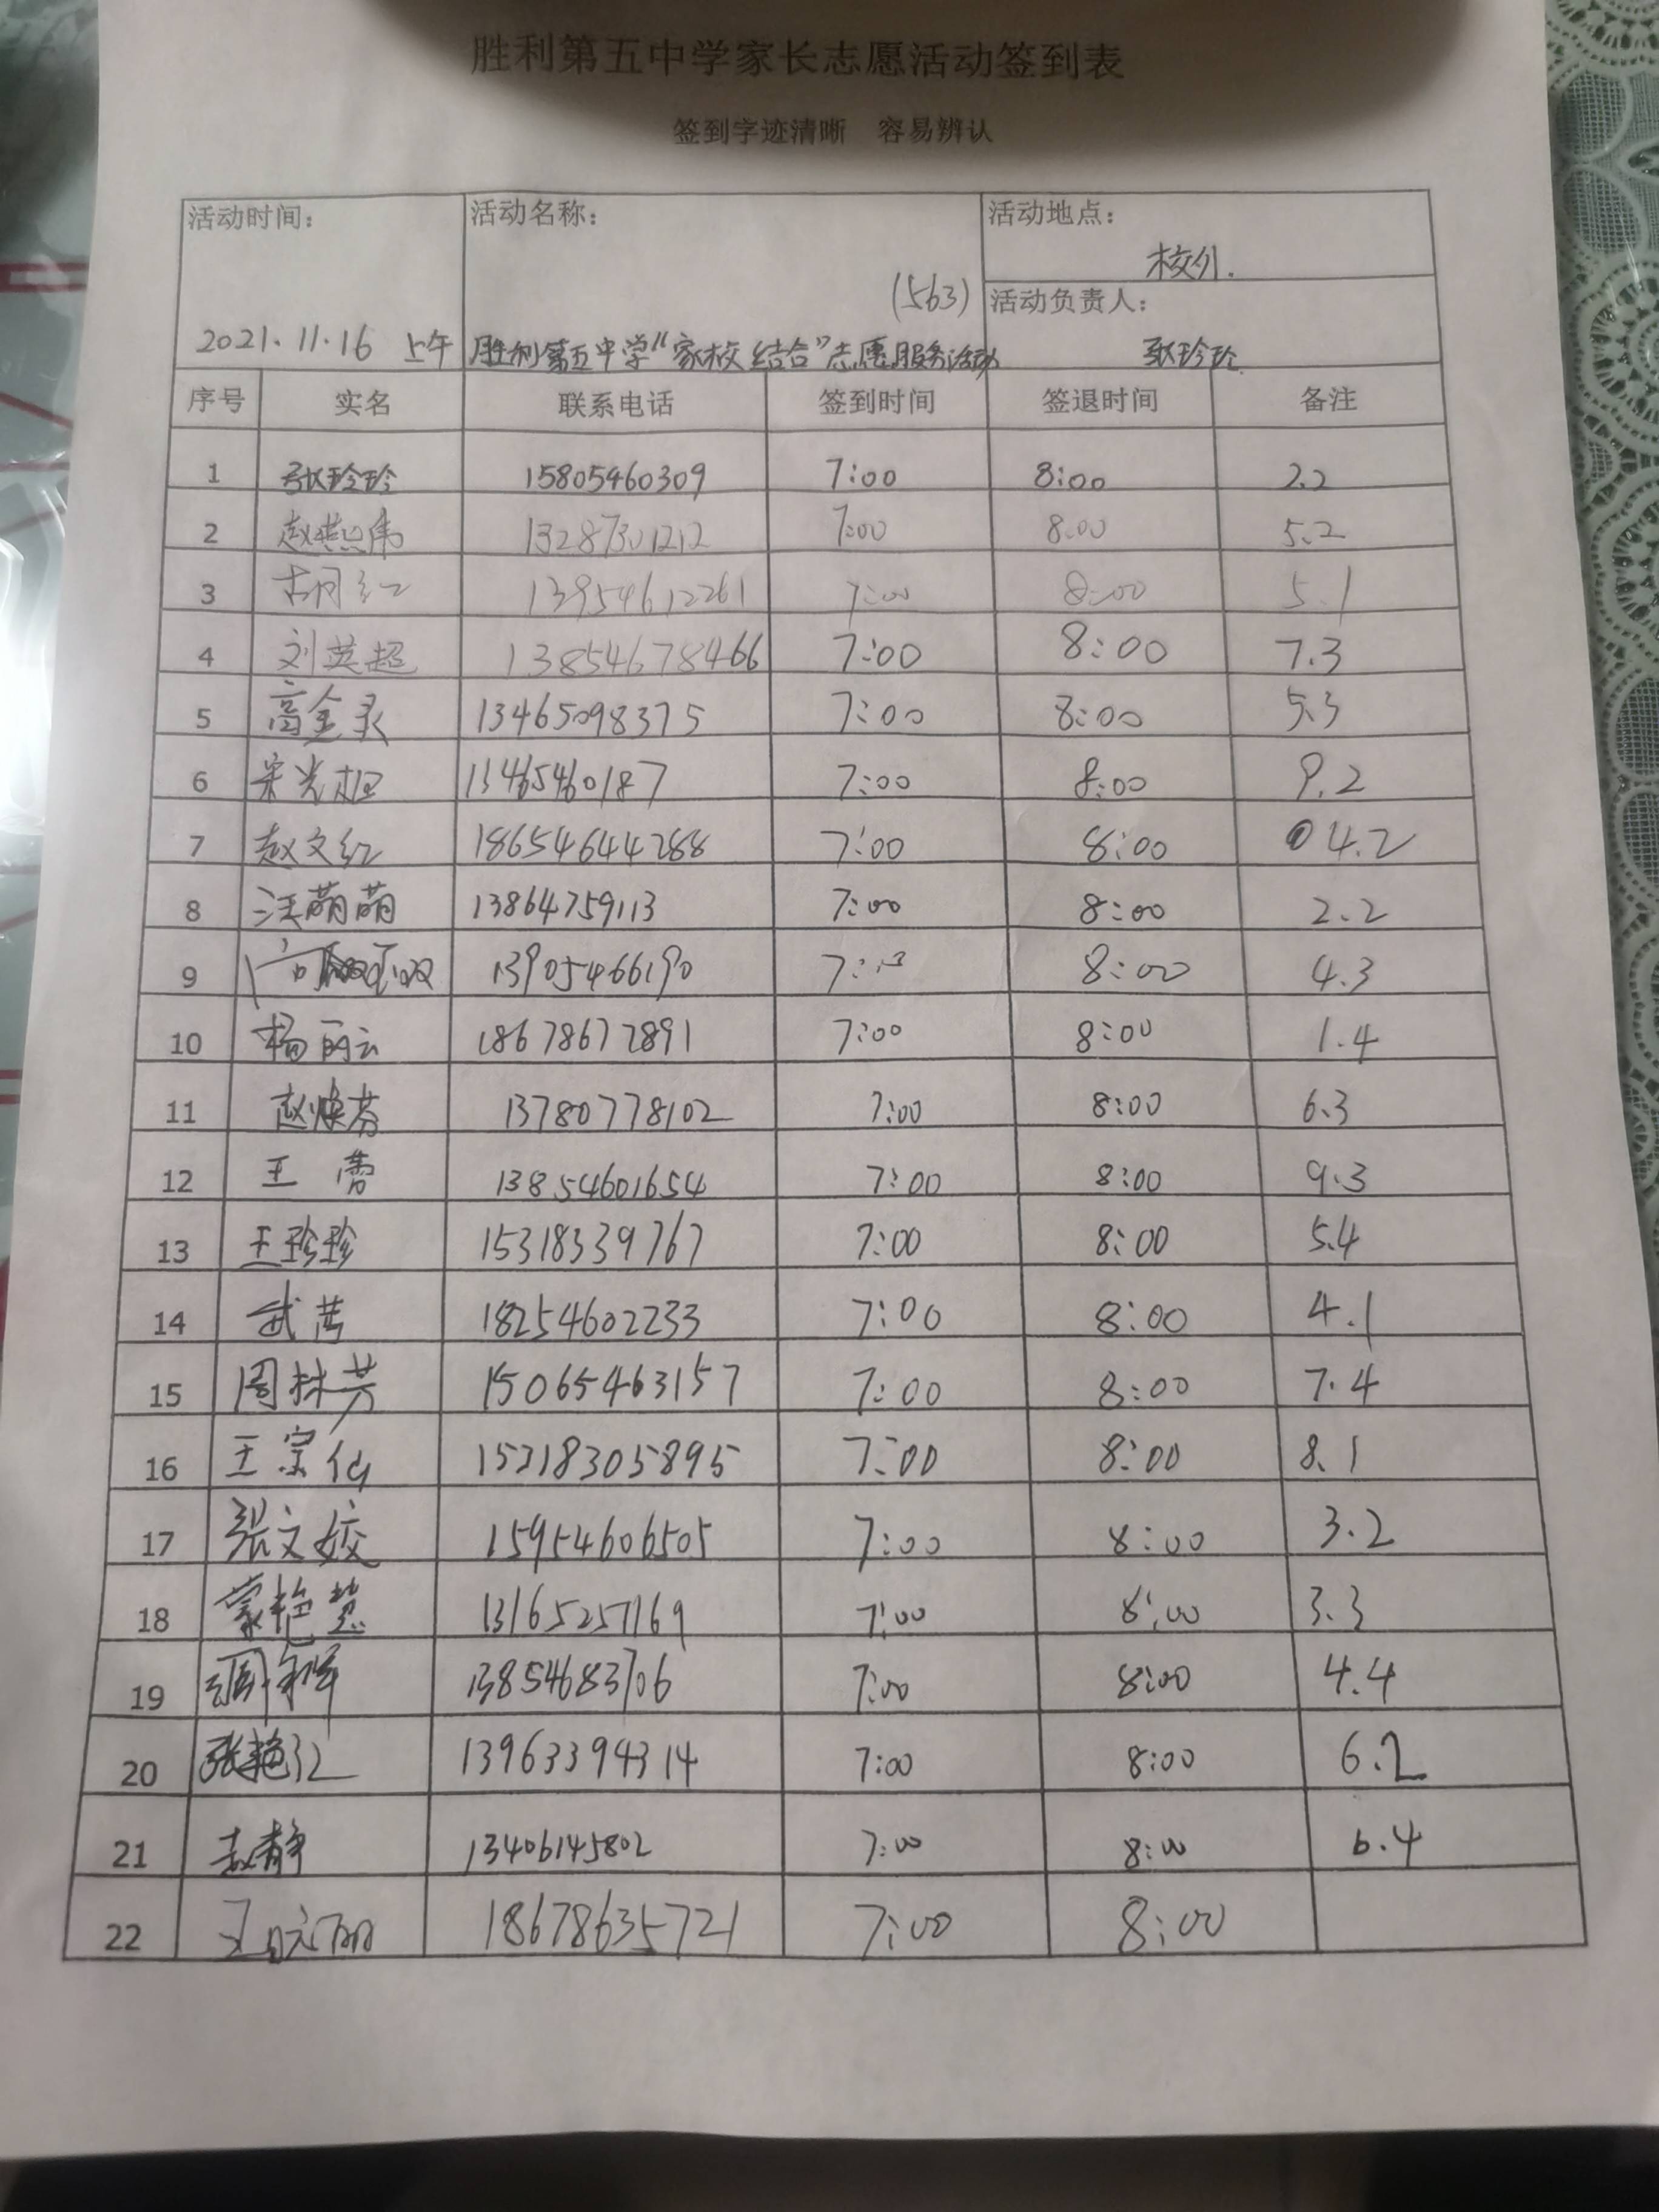 胜利第五中学家长志愿活动签到表
签到字迹清晰 容易辨认
活动时间: 活动名称: 活动地点:
校外.
(563) 活动负责人:
2021.11.16 上午 胜利第五中学“家校结合”志愿服务活动 张玲玲
序号 实名 联系电话 签到时间 签退时间 备注
1 张玲玲 15805460309 7:00 8:00 2.2
2 赵燕伟 13287301212 7:00 8:00 5.2
3 13954612261 7:00 8:00 5.1
4 刘英超 13854678466 7:00 8:00 7.3
5 高金录 13465098375 7:00 8:00 5.3
6 宋光 13465460187 7:00 8:00 9.2
7 赵文红 18654644288 7:00 8:00 4.2
8 汪萌萌 13864759113 7:00 8:00 2.2
9 13905466190 8:00 4.3
10 杨丽云 18678672891 7:00 8:00 1.4
11 赵焕芬 13780778102 7:00 8:00 6.3
12 王蕾 13854601654 7:00 8:00 9.3
13 王珍珍 15318339767 7:00 8:00 5.4
14 武 18254602233 7:00 8:00 4.1
15 周林芳 15065463157 7:00 8:00 7.4
16 王宗仙 7:00 8:00 8.1
17 张文姣 15954606505 7:00 8:00 3.2
18 蒙艳慧 13165257169 7:00 8:00 3.3
19 13854683706 7:00 8:00 4.4
20 张艳红 13963394314 7:00 8:00 6.2
21 赵静 13406145802 7:00 8:00 6.4
22 王晓丽 18678635721 7:00 8:00